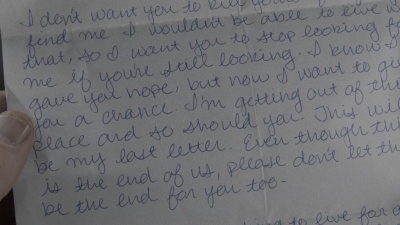 I don't want you to
find me I wouldn't be able to live
that, so I want you to stop looking fo
me if you're still looking. I know I
gave you hope, but now I want to gi
for a chance. I'm getting out of th
peace and so should you. This wil
be my last letter. Even though thi
is the end of us, please don't let th
be the end for you too-
to live for